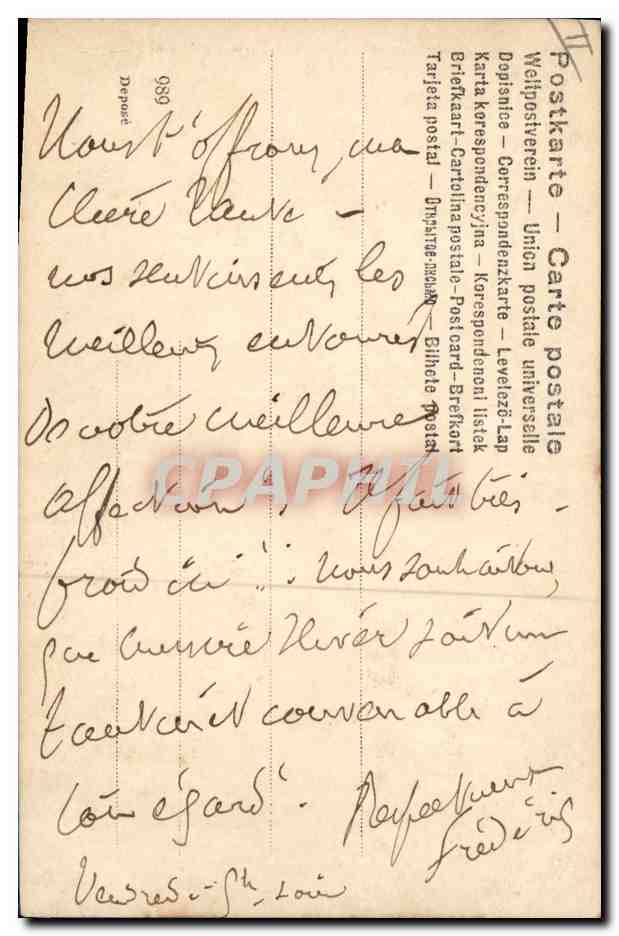 Postkarte – Carte postale
Weltpostverein — Union postale universelle
Dopisnice – Correspondenzkarte – Levelezö-Lap
Karta korespondencyjna – Korespondencni listek
Briefkaart-Cartolina postale-Postcard-Brefkort
Tarjeta postal – Открытое-письмо – Bilhete postal
989
Deposé
Nous t'offrons, ma
Chère Tante –
nos
les
Meilleurs
De notre meilleure
Affection ! Il fait très
froid ici ! : nous souhaitons
que hiver soit un
tant soit convenable à
ton égard.
Frédéric
Vendredi 5h. soir
CPAPHIL